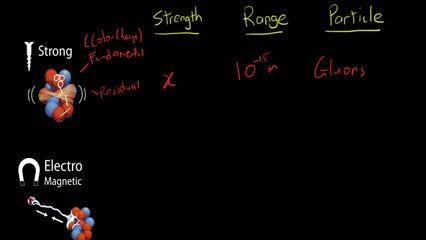 Strength Range Particle
(Color Charge)
Strong
Fundamental
Residual
x 10⁻¹⁵ m Gluons
Electro
Magnetic